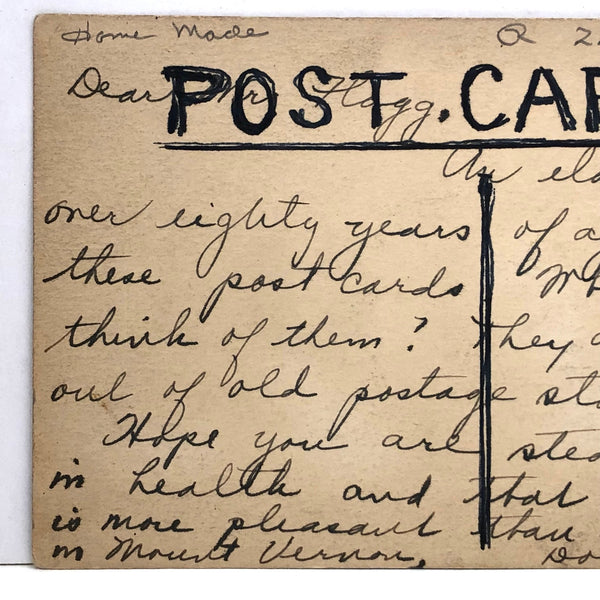 Home Made
POST.CAR
Dear Mr. Flagg.
An el
over eighty years of a
these post cards Wh
think of them? They a
out of old postage st
Hope you are stea
in health and that
is more pleasant than
in Mount Vernon,